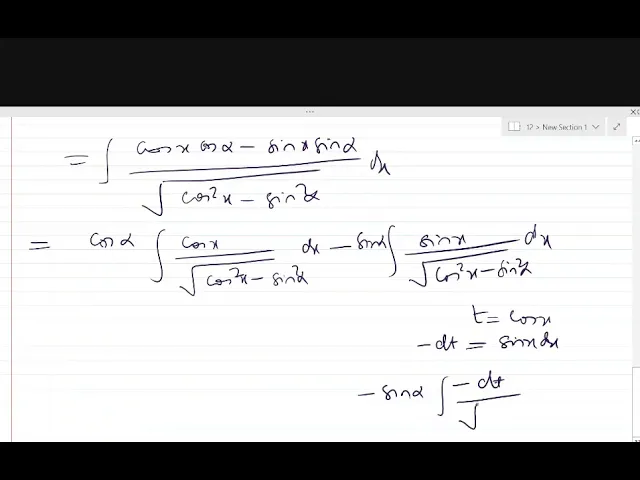 17 > New Section 1
= ∫ (cosx cosα − sinx sinα) / √(cos²x − sin²α) dx
= cosα ∫ cosx / √(cos²x − sin²α) dx − sinα ∫ sinx / √(cos²x − sin²α) dx
t = cosx
−dt = sinx dx
− sinα ∫ −dt / √